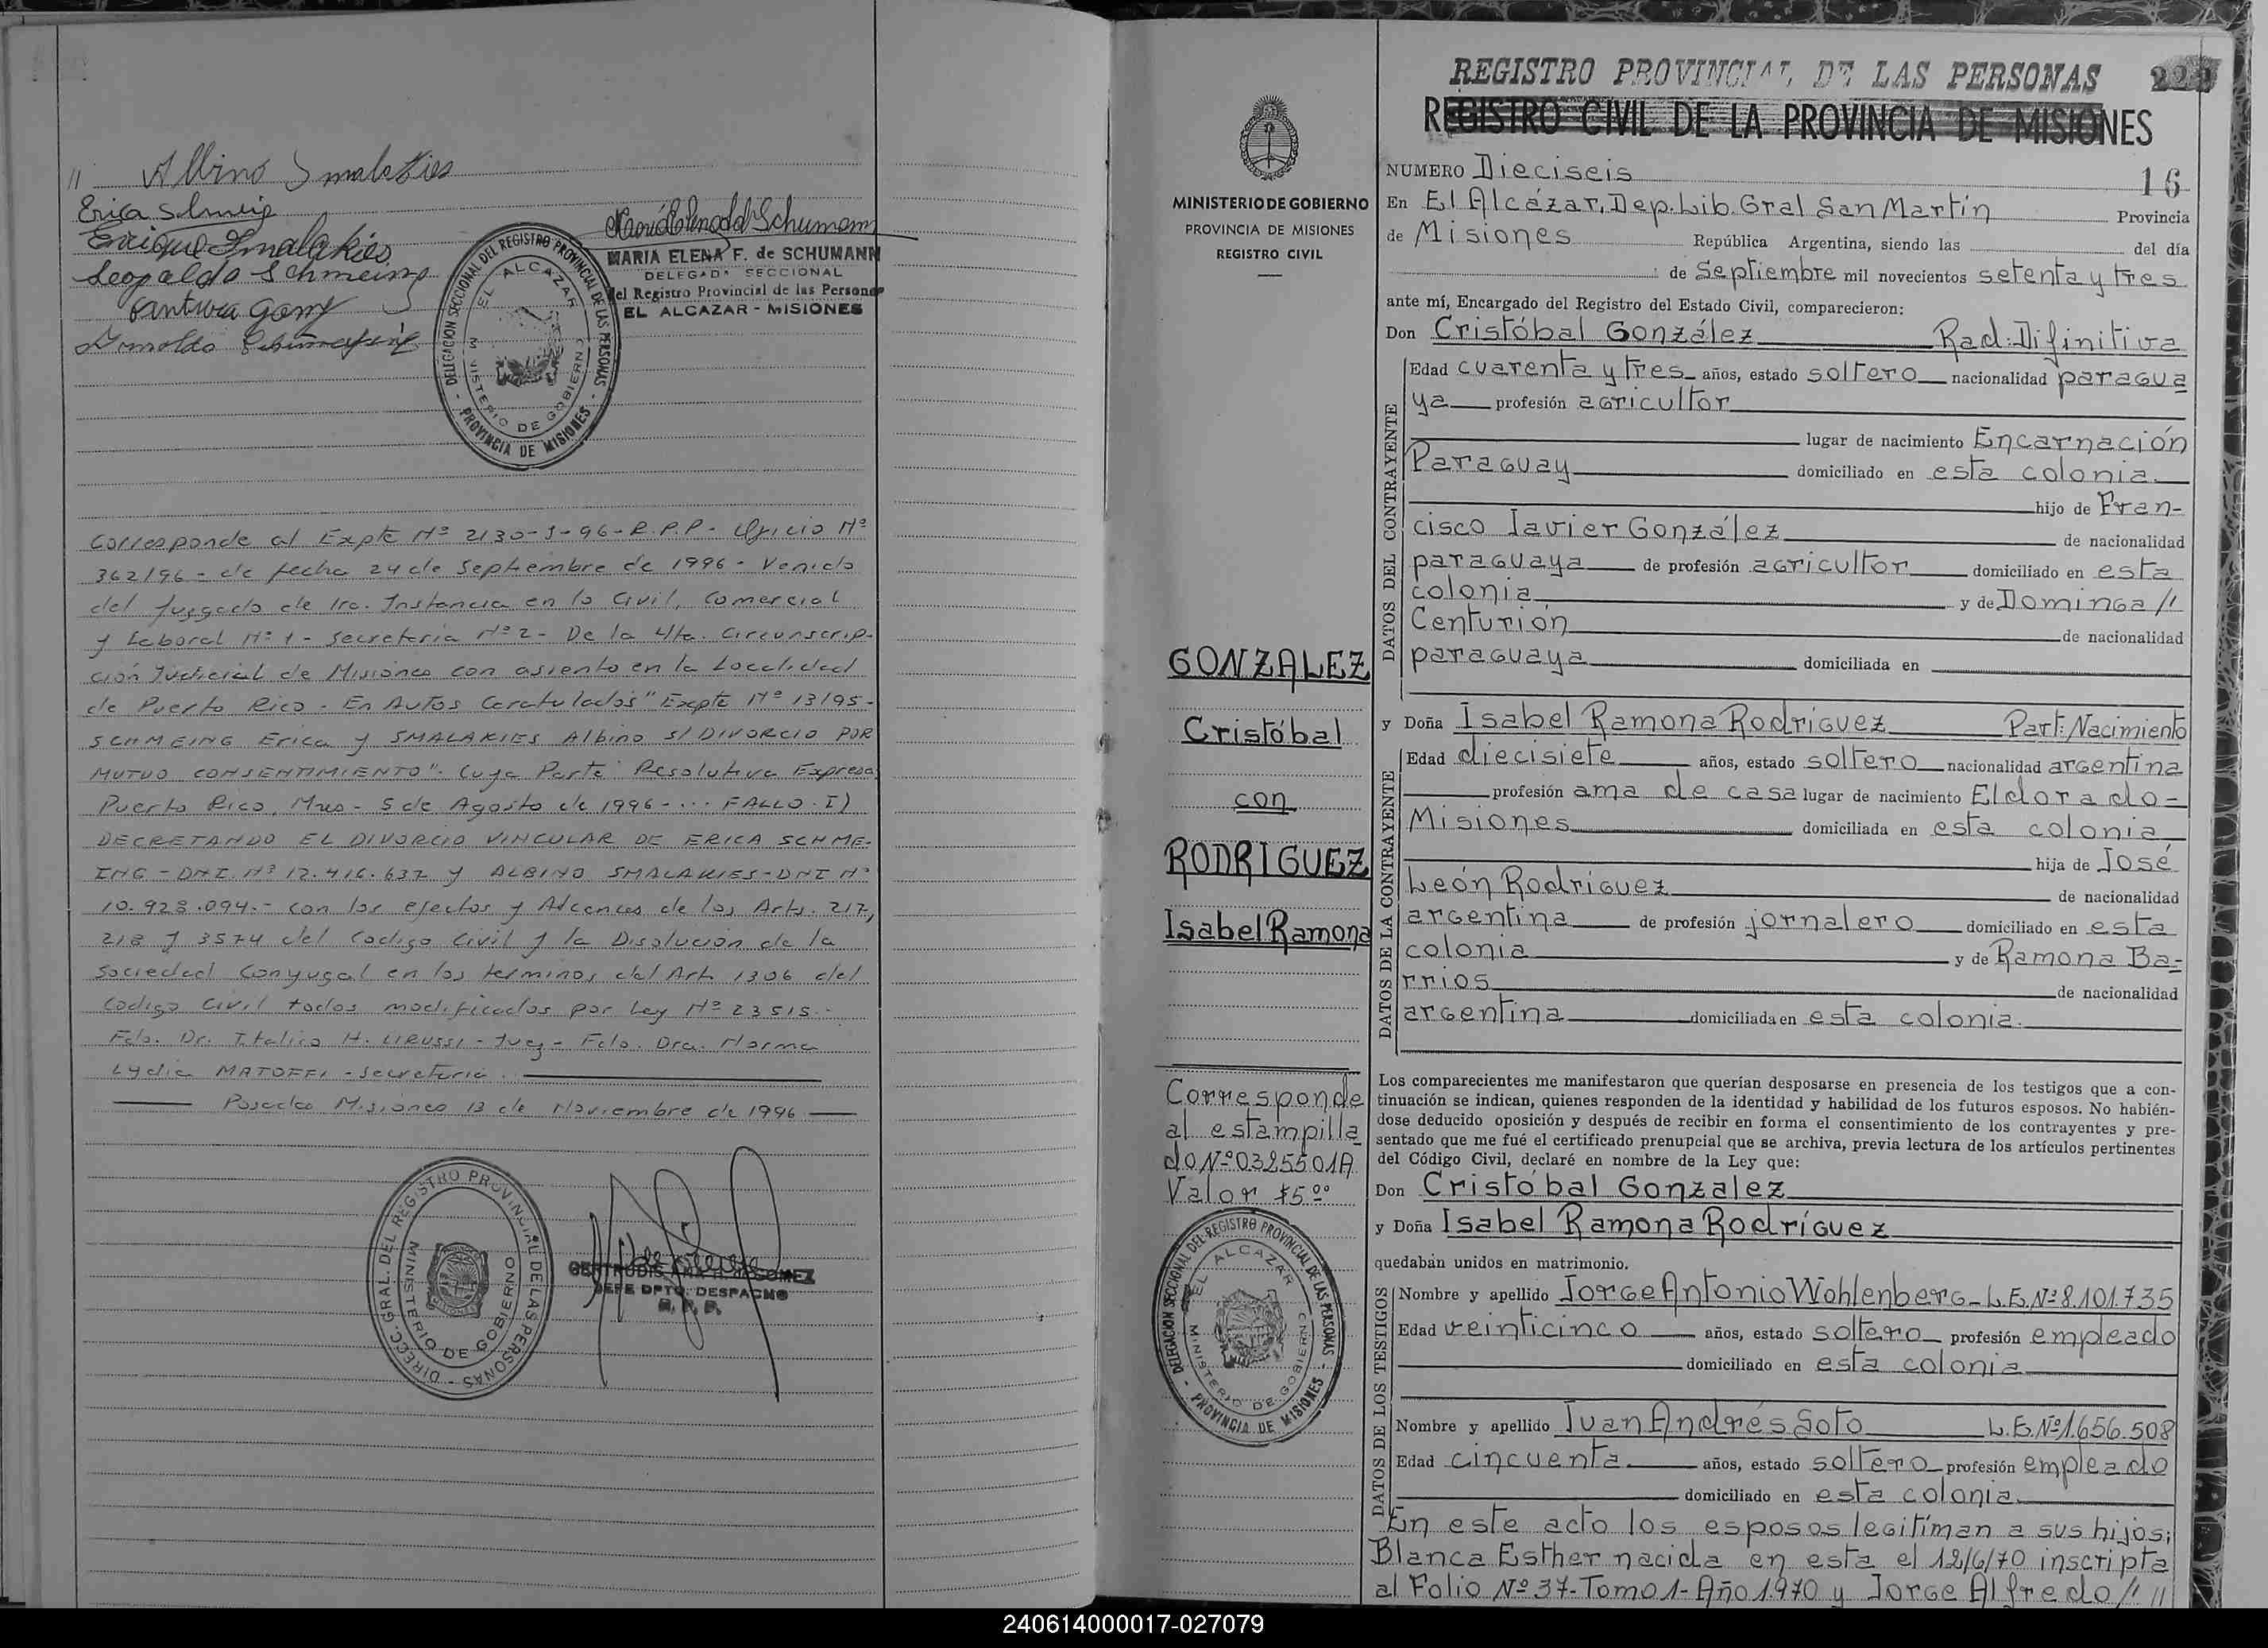 // Albino Smalakies
Erica Schmeig
Enrique Smalakies
Leopoldo Schmeing
Maria Elena F. d Schumann
MARIA ELENA F. de SCHUMANN
DELEGADA SECCIONAL
del Registro Provincial de las Personas
EL ALCAZAR - MISIONES
DELEGACION SECCIONAL DEL REGISTRO PROVINCIAL DE LAS PERSONAS - PROVINCIA DE MISIONES -
EL ALCAZAR
MINISTERIO DE GOBIERNO
Corresponde al Expte Nº 2130-S-96-R.P.P- Oficio Nº
362/96 - de fecha 24 de Septiembre de 1996 - Venido
del Juzgado de 1ra. Instancia en lo Civil, Comercial
y Laboral Nº 1 - Secretaria Nº 2 - De la 4ta. Circunscrip-
ción Judicial de Misiones con asiento en la Localidad
de Puerto Rico - En Autos Caratulados "Expte Nº 13/95-
SCHMEING Erica y SMALAKIES Albino S/ DIVORCIO POR
MUTUO CONSENTIMIENTO". Cuya Parte Resolutiva Expresa
Puerto Rico, Mnes - 5 de Agosto de 1996 - ... FALLO. I)
DECRETANDO EL DIVORCIO VINCULAR DE ERICA SCHME-
ING - DNI Nº 12.416.637 y ALBINO SMALAKIES - DNI Nº
10.928.094.- con los efectos y Alcances de los Arts. 217,
218 y 3574 del Codigo Civil y la Disolución de la
Sociedad Conyugal en los terminos del Art 1306 del
Codigo Civil todos modificados por Ley Nº 23515.-
Fdo. Dr. Italico H. LIRUSSI - Juez - Fdo. Dra. Norma
Lydia MATOFFI - Secretaria.
Posadas Misiones 13 de Noviembre de 1996
DIRECC. GRAL. DEL REGISTRO PROVINCIAL DE LAS PERSONAS -
MINISTERIO DE GOBIERNO
GERTRUDIS GOMEZ
JEFE DPTO. DESPACHO
R. P. P.
REGISTRO PROVINCIAL DE LAS PERSONAS
REGISTRO CIVIL DE LA PROVINCIA DE MISIONES
MINISTERIO DE GOBIERNO
PROVINCIA DE MISIONES
REGISTRO CIVIL
GONZALEZ
Cristóbal
con
RODRIGUEZ
Isabel Ramona
Corresponde
al estampilla
do Nº 0325501A
Valor $5,00
DELEGACION SECCIONAL DEL REGISTRO PROVINCIAL DE LAS PERSONAS - PROVINCIA DE MISIONES -
EL ALCAZAR
MINISTERIO DE GOBIERNO
NUMERO Dieciseis 16
En El Alcázar, Dep. Lib. Gral San Martín Provincia
de Misiones República Argentina, siendo las del día
de Septiembre mil novecientos setenta y tres
ante mí, Encargado del Registro del Estado Civil, comparecieron:
Don Cristóbal González Rad: Difinitiva
DATOS DEL CONTRAYENTE
Edad cuarenta y tres años, estado soltero nacionalidad paragua
ya profesión agricultor
lugar de nacimiento Encarnación
Paraguay domiciliado en esta colonia.
hijo de Fran-
cisco Javier González de nacionalidad
paraguaya de profesión agricultor domiciliado en esta
colonia y de Dominga //
Centurión de nacionalidad
paraguaya domiciliada en
y Doña Isabel Ramona Rodríguez Part: Nacimiento
DATOS DE LA CONTRAYENTE
Edad diecisiete años, estado soltero nacionalidad argentina
profesión ama de casa lugar de nacimiento Eldorado-
Misiones domiciliada en esta colonia
hija de José
León Rodríguez de nacionalidad
argentina de profesión jornalero domiciliado en esta
colonia y de Ramona Ba-
rrios de nacionalidad
argentina domiciliada en esta colonia.
Los comparecientes me manifestaron que querían desposarse en presencia de los testigos que a con-
tinuación se indican, quienes responden de la identidad y habilidad de los futuros esposos. No habién-
dose deducido oposición y después de recibir en forma el consentimiento de los contrayentes y pre-
sentado que me fué el certificado prenupcial que se archiva, previa lectura de los artículos pertinentes
del Código Civil, declaré en nombre de la Ley que:
Don Cristóbal González
y Doña Isabel Ramona Rodríguez
quedaban unidos en matrimonio.
DATOS DE LOS TESTIGOS
Nombre y apellido Jorge Antonio Wohlenberg - L.E. Nº 8.101.735
Edad veinticinco años, estado soltero profesión empleado
domiciliado en esta colonia
Nombre y apellido Juan Andrés Soto L.E. Nº 1.656.508
Edad cincuenta años, estado soltero profesión empleado
domiciliado en esta colonia.
En este acto los esposos legitíman a sus hijos;
Blanca Esther nacida en esta el 12/6/70 inscripta
al Folio Nº 37-Tomo 1-Año 1.970 y Jorge Alfredo // //
240614000017-027079